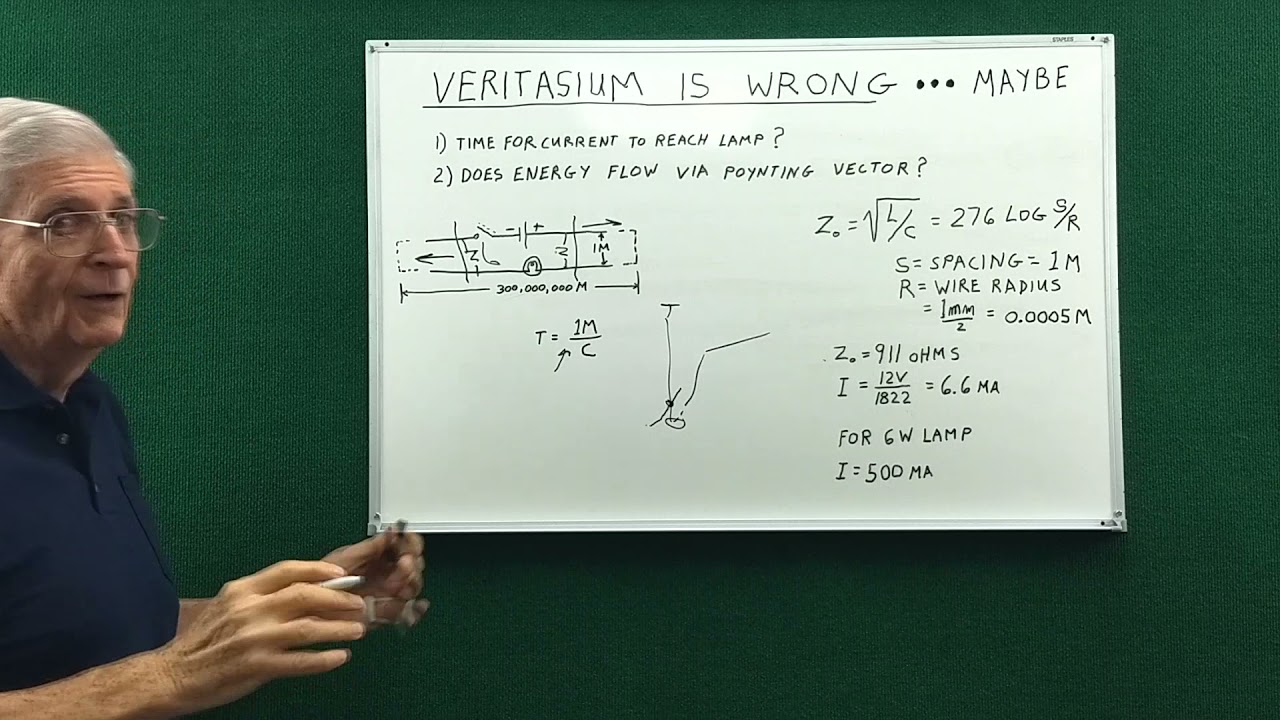 STAPLES
VERITASIUM IS WRONG ••• MAYBE
1) TIME FOR CURRENT TO REACH LAMP?
2) DOES ENERGY FLOW VIA POYNTING VECTOR?
- +
Z Z 1M
300,000,000 M
T = 1M/C
T
Z₀ = √L/C = 276 LOG S/R
S = SPACING = 1 M
R = WIRE RADIUS
= 1mm/2 = 0.0005 M
Z₀ = 911 OHMS
I = 12V/1822 = 6.6 MA
FOR 6W LAMP
I = 500 MA